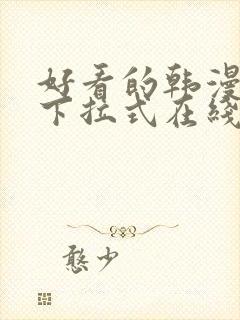 好看的韩漫
下拉式在线
憨少